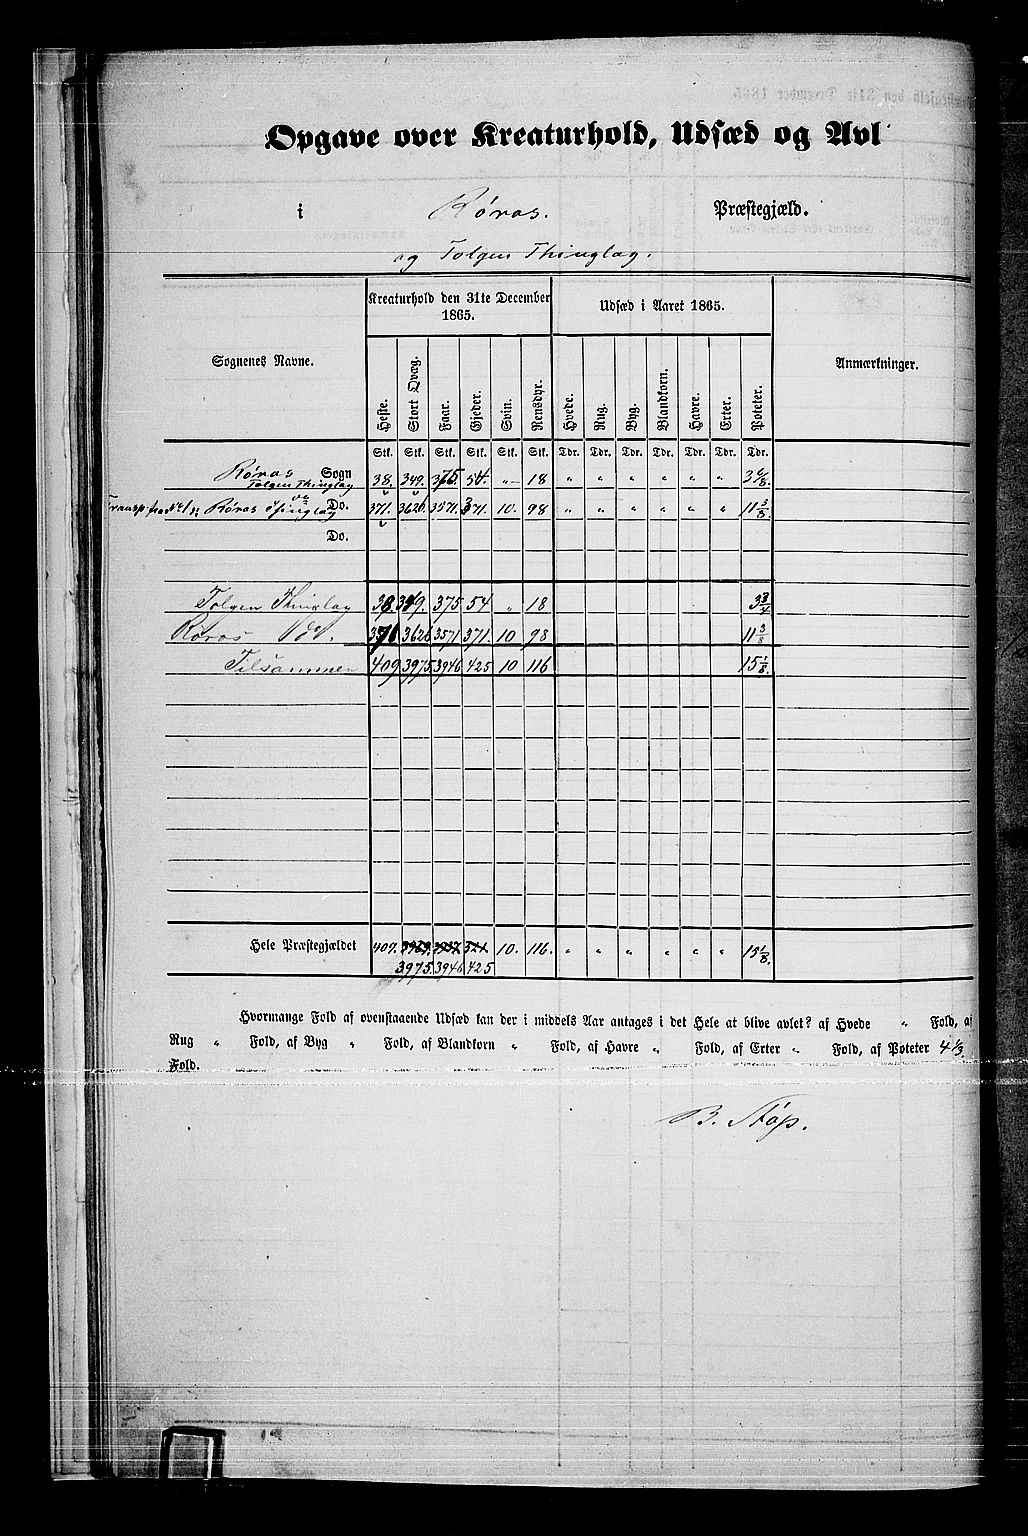 Opgave over Kreaturhold, Udsæd og Avl
i Røros. Præstegjæld.
og Tolgen Thinglag.
Sognenes Navne. Kreaturhold den 31te December 1865. Udsæd i Aaret 1865. Anmærkninger.
Heste. Stort Qvæg. Faar. Gjeder. Svin. Rensdyr. Hvede. Rug. Byg. Blandkorn. Havre. Erter. Poteter.
Stk. Stk. Stk. Stk. Stk. Stk. Tdr. Tdr. Tdr. Tdr. Tdr. Tdr. Tdr.
Røros Sogn 38. 349. 375. 54. „ 18 „ „ „ „ „ „ 3 6/8.
Tolgen Thinglag
Transp. fra No 1 Røros Thinglag Do. 371. 3626. 3571. 371. 10. 98 „ „ „ „ „ „ 11 3/8.
Do.
Tolgen Thinglag 38 349. 375 54 „ 18 3 3/4
Røros do. 371 3626 3571 371. 10 98 11 3/8
Tilsammen 409 3975 3946 425 10 116 15 1/8.
Hele Præstegjældet 409. 10. 116. „ „ „ „ „ „ 15 1/8.
3975. 3946 425
Hvormange Fold af ovenstaaende Udsæd kan der i middels Aar antages i det Hele at blive avlet? af Hvede „ Fold, af
Rug „ Fold, af Byg „ Fold, af Blandkorn „ Fold, af Havre „ Fold, af Erter „ Fold, af Poteter 4 1/3
Fold.
B. Støp.